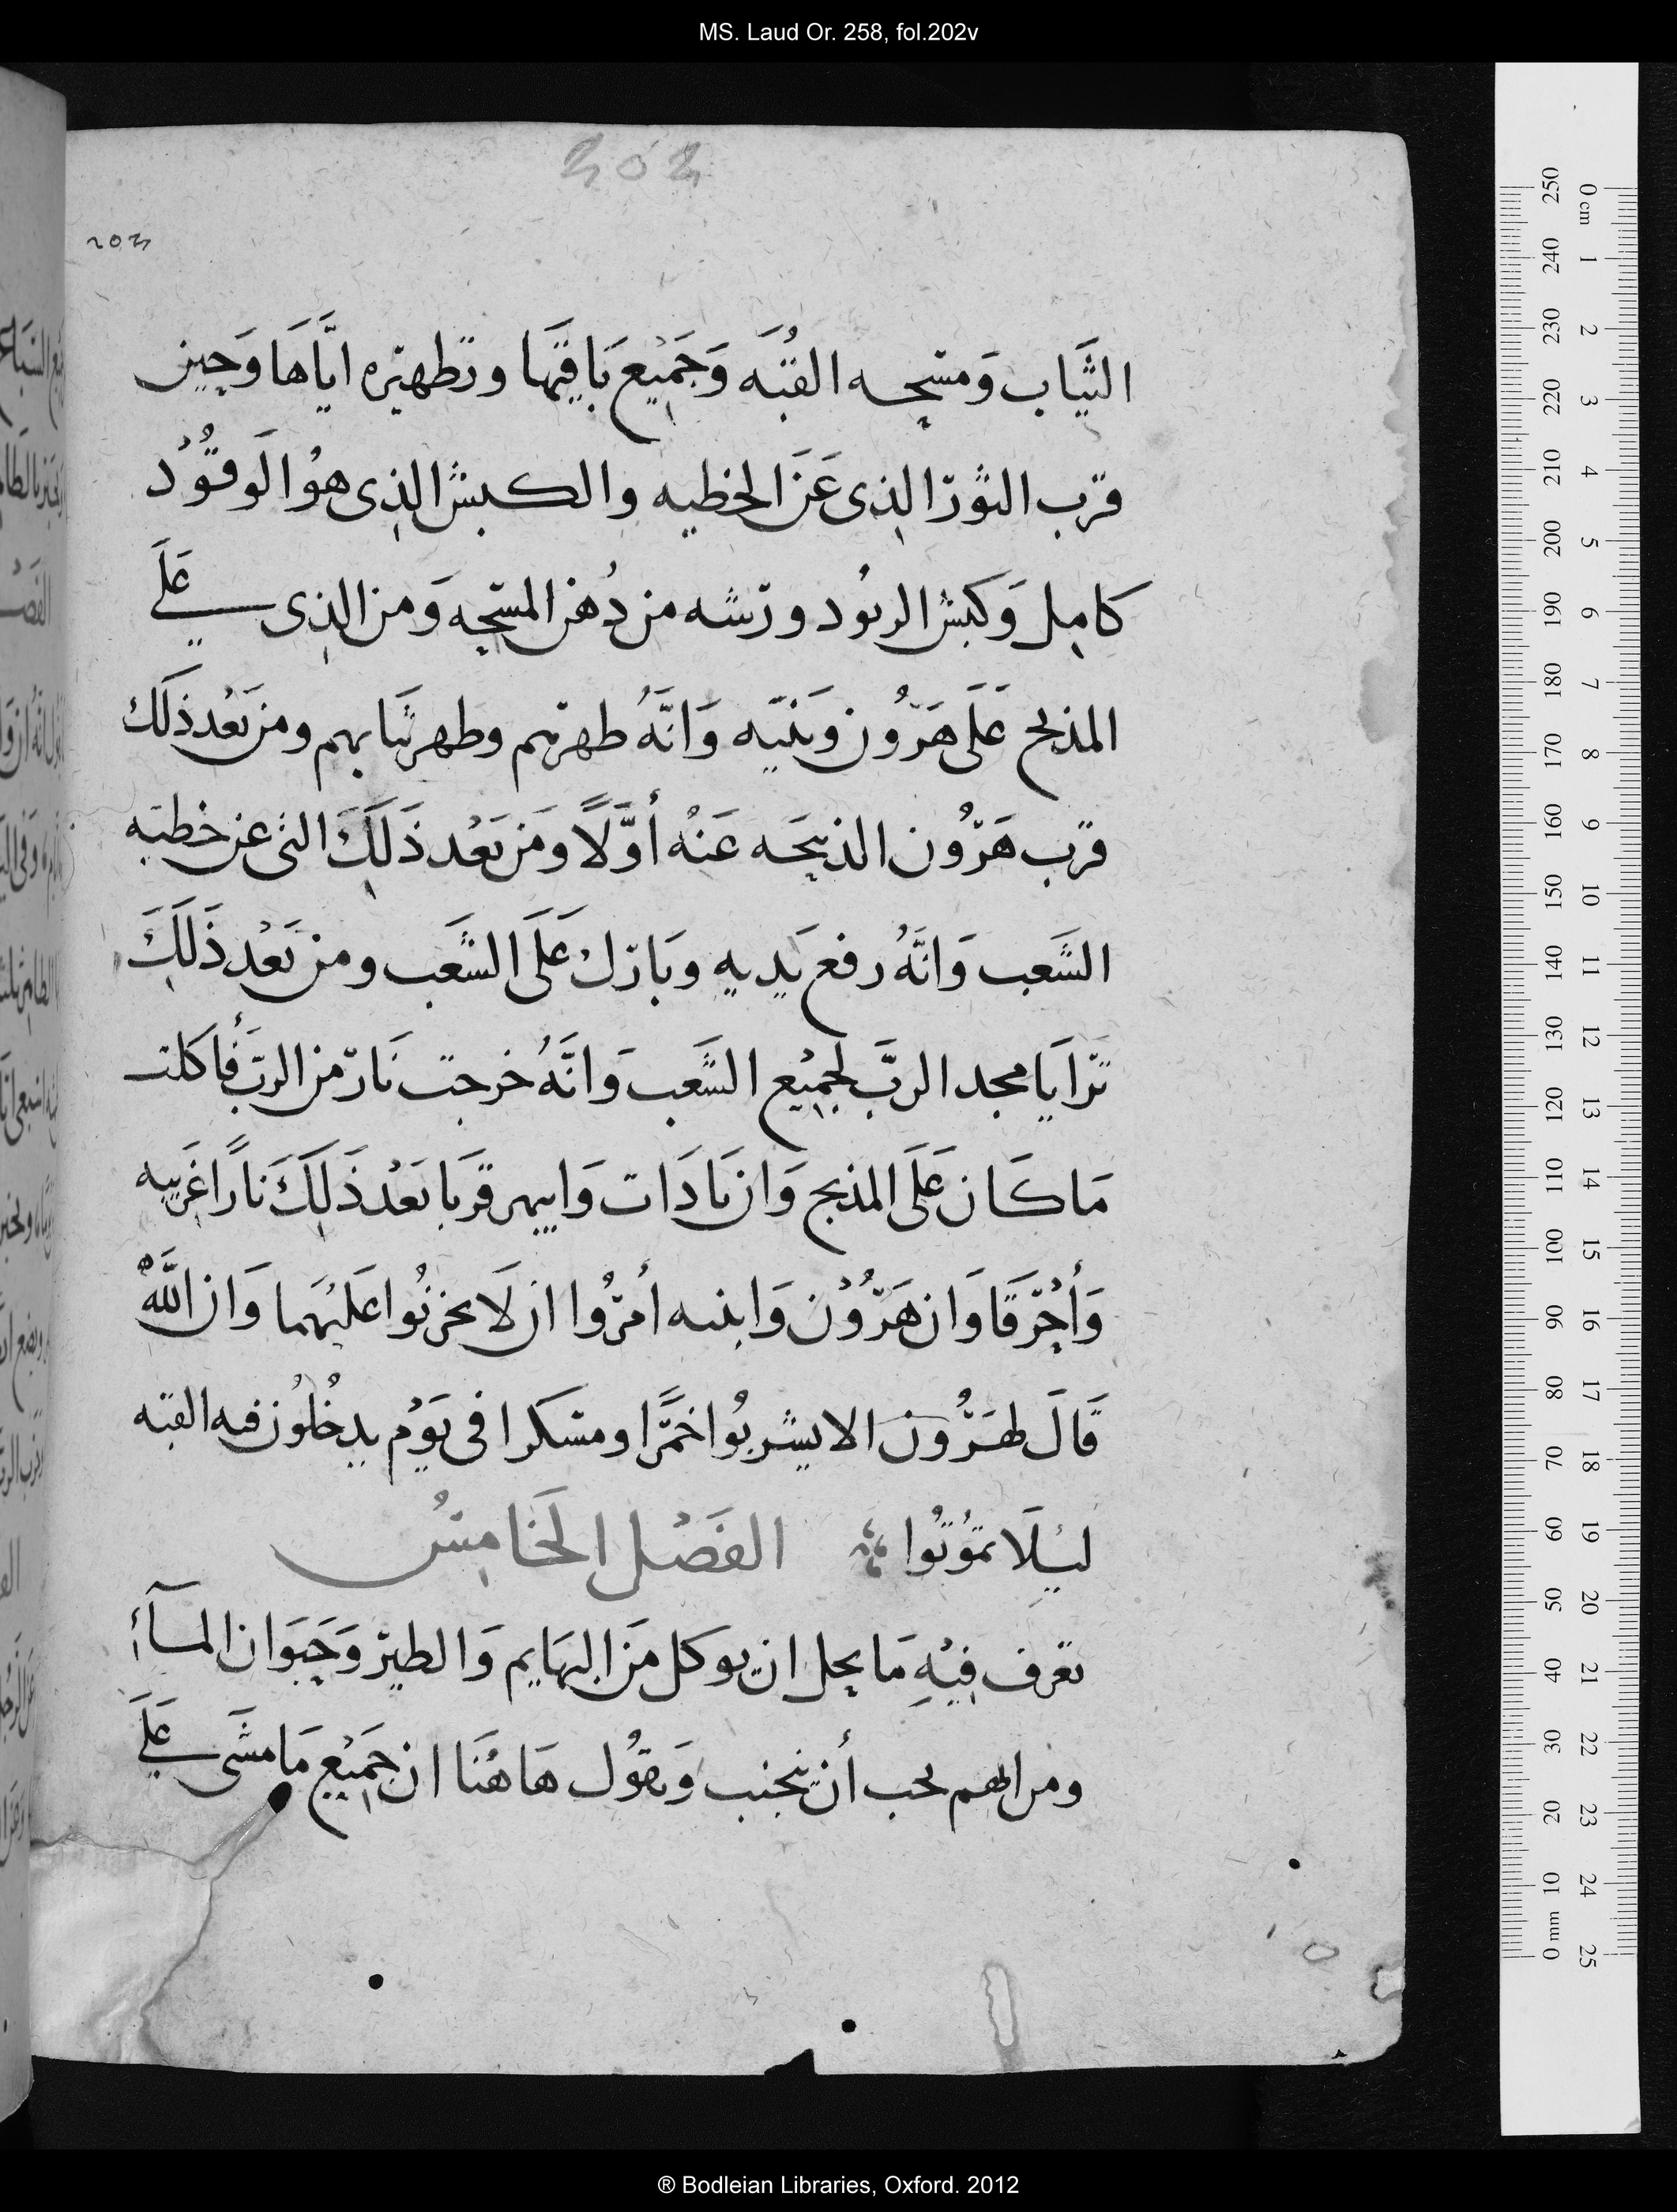 MS. Laud Or. 258, fol.202v
202
202
الثَيَاب وَمسَحِه القُبَه وَجَمِيْع بَاقِيَها وتطهيره ايَّاهَا وَحِين
قرب الثور الذِى عَنَ الخطيه والكبش الذِى هوُا لَوقوُد
كامِل وَكبش الربُود ورشه من دُهن المسحِه وَمن الذِى عَلَى
المذبح عَلَى هَرُون وَبنيَه وَانَّهُ طهرهم وطهر ثيَابهم ومن بَعْد ذلَك
قرب هَرُون الذبيحَه عَنهُ أوَّلاً ومَن بَعْد ذَلَكَ التى عن خطيه
الشَعب وَانَّهُ رفع يَديهِ وبَارك عَلَى الشَعب ومن بَعْد ذَلَكَ
ترَايَا مجد الربَّ لجمِيْع الشَعب وَانَّهُ خرجت نَار من الربَّ فأكلت
مَا كَان عَلَى المذبح وَان نَادَات وَابيهر قربَا بَعْد ذَلَكَ نَارًا غَريبه
وَأحْرَقَا وَان هَرُوْن وَابنيه أمرُوا ان لَا يحزنُوا عَليْهَما وَان اللَّهُ
قَالَ لهَرُون الا يشربُوا خمَرًا ومسَكرا فى يَوْم يدخُلوُن فيه القبه
ليْلَا تموُتُوا الفَصْل الخَامِسُ
تعرف فيْهِ مَا يحل ان يوكل مَن البهَايم وَالطير وَحَيَوَان المآء
ومن ايهم يحب أن يجنب وَيقوُل هَاهُنَا ان جَمِيْع مَا مشَى عَلَى
0 cm 1 2 3 4 5 6 7 8 9 10 11 12 13 14 15 16 17 18 19 20 21 22 23 24 25
250 240 230 220 210 200 190 180 170 160 150 140 130 120 110 100 90 80 70 60 50 40 30 20 10 0 mm
® Bodleian Libraries, Oxford. 2012